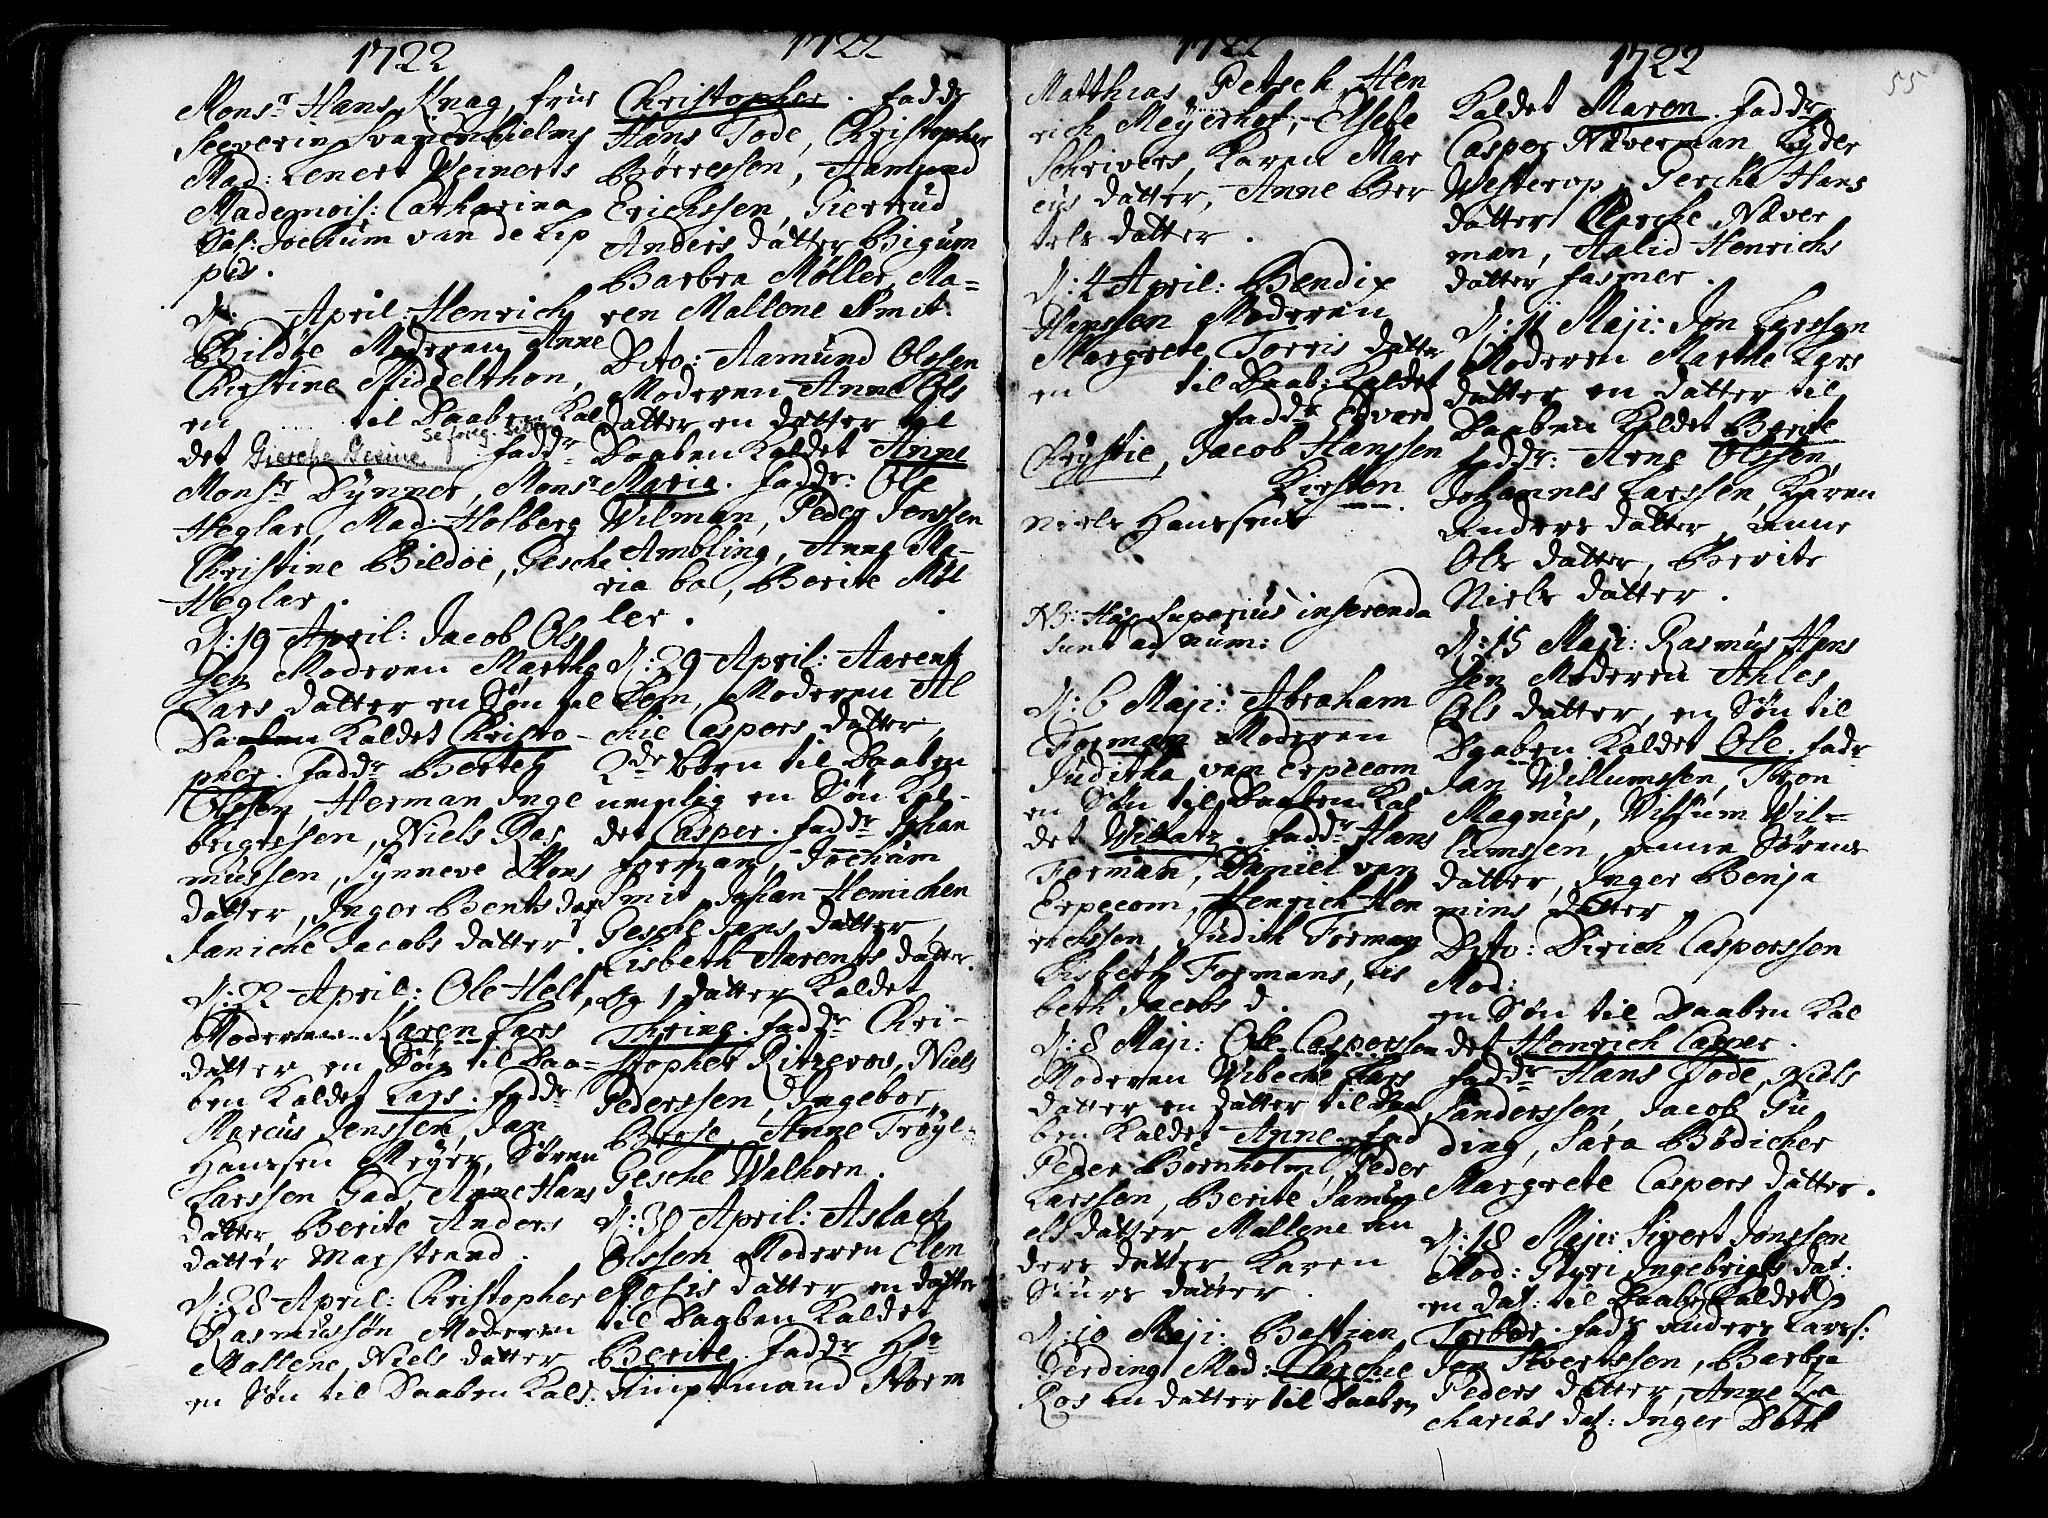 1722
Monsr Hans Knag, frue
Seeverin Svanenhielms
Mad: Lenert Weinerts
Mademois: Catharina
Sal: Jochum van de Lip
pes.
d: April: Henrich
Bildøe Moderen Anne
Christine Middelthon,
en til Daaben Kal
det Giesche Sef orig.
faddr
Monsr Dynner, Monsr
Heglar, Mad: Holberg
Christine Bildøe, Gesche
Heglar.
d: 19 April: Jacob Ols
sen Moderen Marthe
Lars datter en Søn til
Daaben Kaldet Christo-
pher. faddr Bertel
Olssen, Herman Inge
brigtssen, Niels Ras
mussen, Synneve Mons
datter, Inger Bents dat
Janiche Jacobs datter.
d: 22 April: Ole Helt,
Moderen Karen Lars
datter en Søn til Daa-
ben Kaldet Lars. faddr
Marcus Jenssen, Jan
Hanssen Meyer, Søren
Larssen Gad, Anne Hans
datter Berite Anders
datter Marstrand.
d: 28 April: Christopher
Rasmussøn Moderen
Mallene Niels datter
en Søn til Daaben Kald:
1722
Christopher. faddr
Hans Tode, Christopher
Børressen, Aamund
Erichssen, Giertrud
Anders datter Bigum
Barbra Møller, Ma=
ren Mallene Smit.
Dito: Aamund Olssen
Moderen Anne Ols
datter en datter til
Daaben Kaldet Anne
Maria. faddr: Ole
Wilman, Peder Jenssen
Ambling, Anne Ma-
ria bal, Berite Møl
ler.
d: 29 April: Aarent
Born, Moderen Al
chie Caspers datter,
2de Børn til Daaben
nemlig en Søn Kal-
det Casper. faddr Johan
forman, Jochum
Smit, Johan Hemichen
Gesche Jans datter,
Lisbeth Aarents datter.
Og 1 datter Kaldet
Thring. faddr Chri-
stopher Ritzerow, Niels
Pederssen, Ingebor
Berse, Anne Trøye-
Gesche Walhorn.
d: 30 April: Aslach
Olssen Moderen Elen
Mosis datter en datter
til Daaben Kaldet
Berite. faddr Hr
Amptmand Storm
1722
Matthias Petsch, Hen
rich Meyerhof, Elsebe
Schrivers, Karen Mar
cus datter, Anne Ber
tels datter.
d: 4 April: Bendix
Hanssen Moderen
Margrete Torris datter
en til Daab: Kaldet
faddr Edvard
Chrystie, Jacob Hanssen
Kirsten
Niels Hanssens
NB: Hæc Superius inserenda
sunt ad num:
d: 6 Maji: Abraham
Forman Moderen
Juditha van Erpecom
en Søn til Daaben Kal
det Willatz. faddr Hans
Forman, Daniel van
Erpecom, Henrich Hen
richssen, Judith Forman
Lisbeth Formans, Lis
beth Jacobs d.
d: 8 Maji: Ole Casperssen
Moderen Wibeche Lars
datter en datter til Daa
ben Kaldet Anne. fad
Peder Bornholm, Peder
Larssen, Berite Samu
els datter, Mallene An
ders datter Karen
Siurs datter.
d: 10 Maji: Bastian
Gerding Mad: Clarchie
Ros en datter til Daaben
1722
55
Kaldet Maren. faddr
Casper Näverman, Ryder
Westerop, Gerche Hans
datter Clarche Näver
man, Aalid Henrichs
datter fasmer.
d: 11 Maji: Jon Larssen
Moderen Marthe Lars
datter en datter til
Daaben Kaldet Berite
faddr: Arne Olssen,
Johannes Larssen, Karen
Anders datter, Anne
Ols datter, Berite
Niels datter.
d: 15 Maji: Rasmus Hans
sen Moderen Ahles
Ols datter, en Søn til
Daaben Kaldet Ole. fadr
Jan Willumssen, Tron
Magnus, Willum Wil=
lumssen, Anne Sørens
datter, Inger Benja
mins datter.
Dito: Dirich Casperssen
Mod:
en Søn til Daaben Kal
det Henrich Casper.
faddr Hans Tode, Niels
Sanderssen, Jacob Gu
ding, Sara Bødicher
Margrete Caspers datter.
d: 18 Maji: Sivert Jonssen
Mod: Gyri Ingebrigts dat:
en dat: til Daaben Kaldet
Torbor. fadr Anders Larss:
Jon Sivertssen, Barbra
Peders datter, Anne Za
charias dat: Inger Both